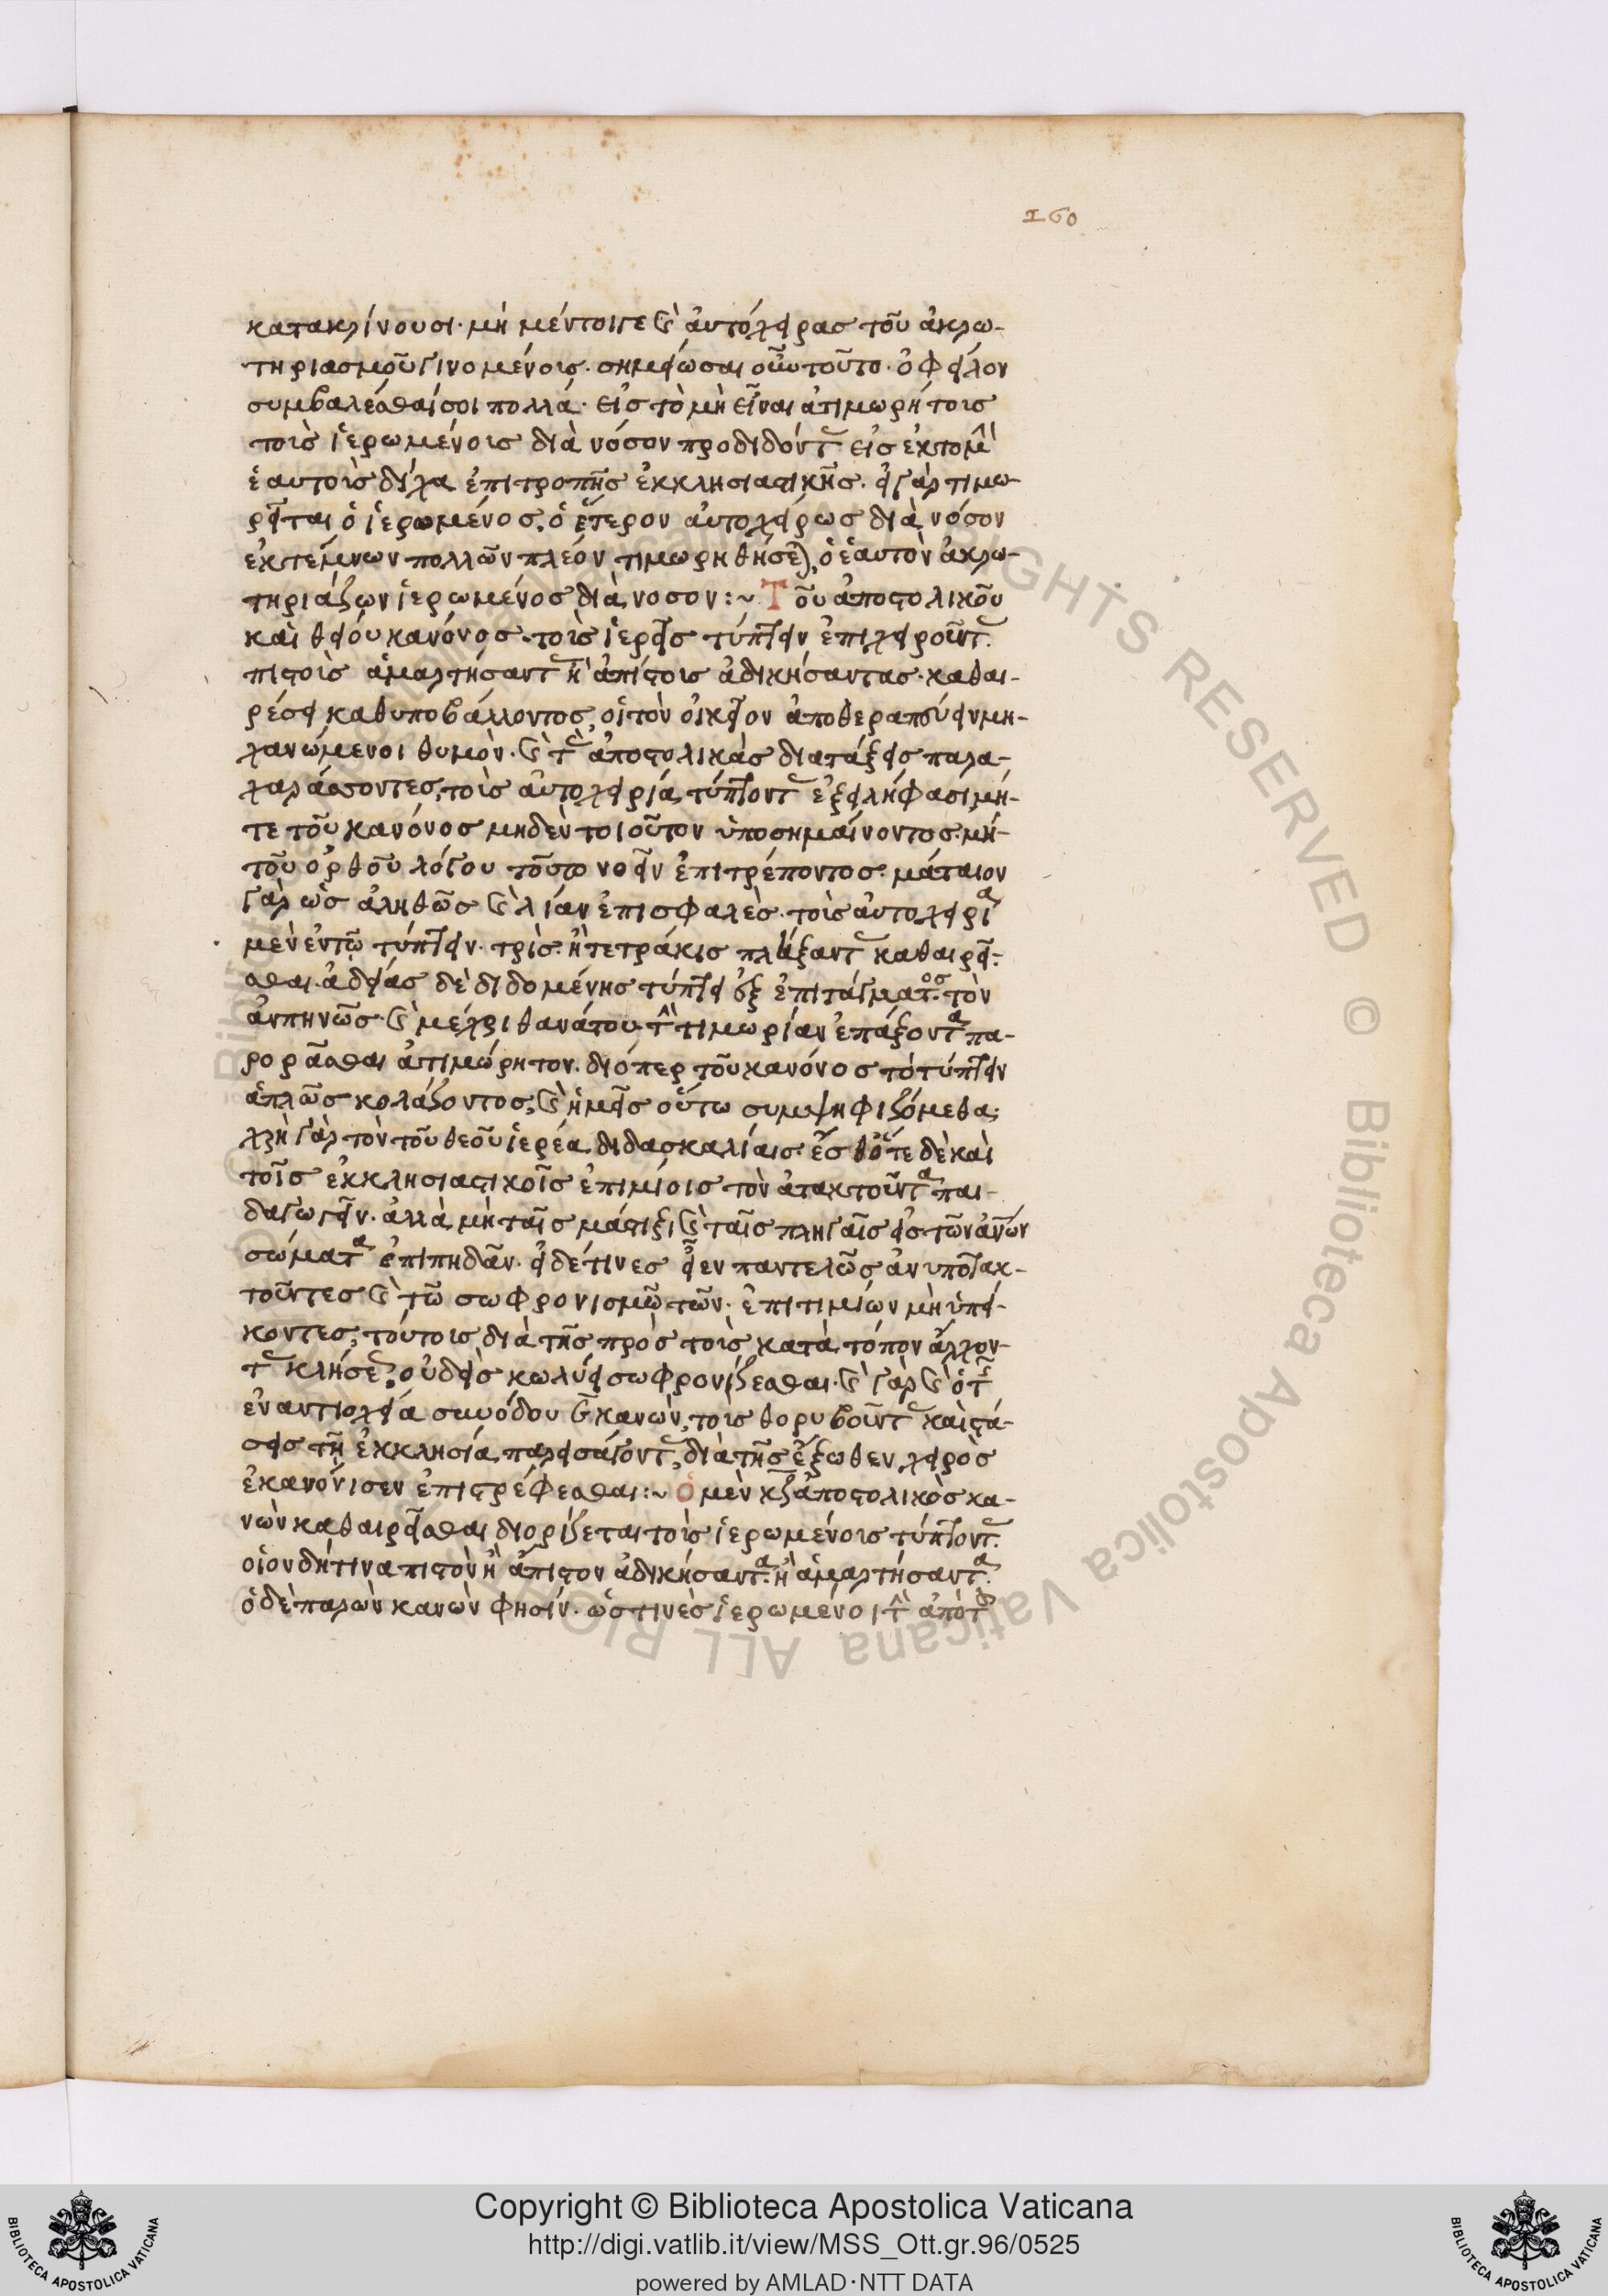 160
κατακρίνουσι· μὴ μέντοιγε καὶ αὐτόχειρας τοῦ ἀκρω-
τηριασμοῦ γινομένοις· σημείωσαι οὖν τοῦτο· ὀφεῖλον
συμβαλέσθαί σοι πολλά· εἰς τὸ μὴ εἶναι ἀτιμωρήτοις
τοὺς ἱερωμένοις διὰ νόσον προδιδόντ εἰς ἐκτομὴν
ἑαυτοὺς δίχα ἐπιτροπῆς ἐκκλησιαστικῆς· εἰ γὰρ τιμω-
ρεῖται ὁ ἱερωμένος, ὁ ἕτερον αὐτοχείρως διὰ νόσον
ἐκτέμνων πολλῶν πλέον τιμωρηθήσεται, ὁ ἑαυτὸν ἀκρω-
τηριάζων ἱερωμένος διὰ νόσον :~ Τοῦ ἀποστολικοῦ
καὶ θείου κανόνος· τοὺς ἱερεῖς τύπτειν ἐπιχειροῦντ
πιστοὺς ἁμαρτήσαντ ἢ ἀπίστοις ἀδικήσαντας· καθαι-
ρέσει καθυποβάλλοντος, οἱ τὸν οἰκεῖον ἀποθεραπεύειν μη-
χανώμενοι θυμὸν· καὶ τὰς ἀποστολικὰς διατάξεις παρα-
χαράσσοντες, τοὺς αὐτοχειρία τύπτοντ ἐξειλήφασι μή-
τε τοῦ κανόνος μηδὲν τοιοῦτον ὑποσημαίνοντος· μή-
τοῦ ὀρθοῦ λόγου τοῦτο νοεῖν ἐπιτρέποντος· μάταιον
γὰρ ὡς ἀληθῶς καὶ λίαν ἐπισφαλὲς· τοὺς αὐτοχειρία
μὲν ἐν τῷ τύπτειν· τρὶς ἢ τετράκις πλήξαντ καθαιρεῖ-
σθαι· ἀδείας δὲ διδομένης τύπτειν ἐξ ἐπιτάγματος· τὸν
ἀπηνῶς· καὶ μέχρι θανάτου τὴν τιμωρίαν ἐπάξοντα πα-
ρορᾶσθαι ἀτιμώρητον· διόπερ τοῦ κανόνος τὸ τύπτειν
ἁπλῶς κολάζοντος, καὶ ἡμεῖς οὕτω συμψηφιζόμεθα·
χρὴ γὰρ τὸν τοῦ θεοῦ ἱερέα διδασκαλίαις· ἔσθ ὅτε δὲ καὶ
τοῖς ἐκκλησιαστικοῖς ἐπιμίοις τὸν ἀτακτοῦντα παι-
δαγωγεῖν· ἀλλὰ μὴ ταῖς μάστιξι καὶ ταῖς πληγαῖς εἰς τῶν ἀνων
σώματα ἐπιπηδᾶν· εἰ δέ τινες εἶεν παντελῶς ἀνυποτακ-
τοῦντες καὶ τῷ σωφρονισμῷ τῶν· ἐπιτιμίων μὴ ὑπεί-
κοντες, τούτοις διὰ τῆς πρὸς τοὺς κατὰ τόπον ἄρχον-
τ κλήσε οὐδεὶς κωλύει σωφρονίζεσθαι· καὶ γὰρ καὶ ὁ τῆς
ἐν ἀντιοχεία συνόδου ε κανὼν, τοὺς θορυβοῦντ καὶ στά-
σεις τῇ ἐκκλησία παρεισάγοντ, διὰ τῆς ἔξωθεν χειρὸς
ἐκανόνισεν ἐπιστρέφεσθαι :~ Ὁ μὲν κζ ἀποστολικὸς κα-
νὼν καθαιρεῖσθαι διορίζεται τοὺς ἱερωμένοις τύπτοντ
οἷον δή τινα πιστὸν ἢ ἄπιστον ἀδικήσαντα· ἢ ἁμαρτήσαντα·
ὁ δὲ παρὼν κανὼν φησίν· ὥς τινες ἱερωμένοι τὴν ἀπὸ τοῦ